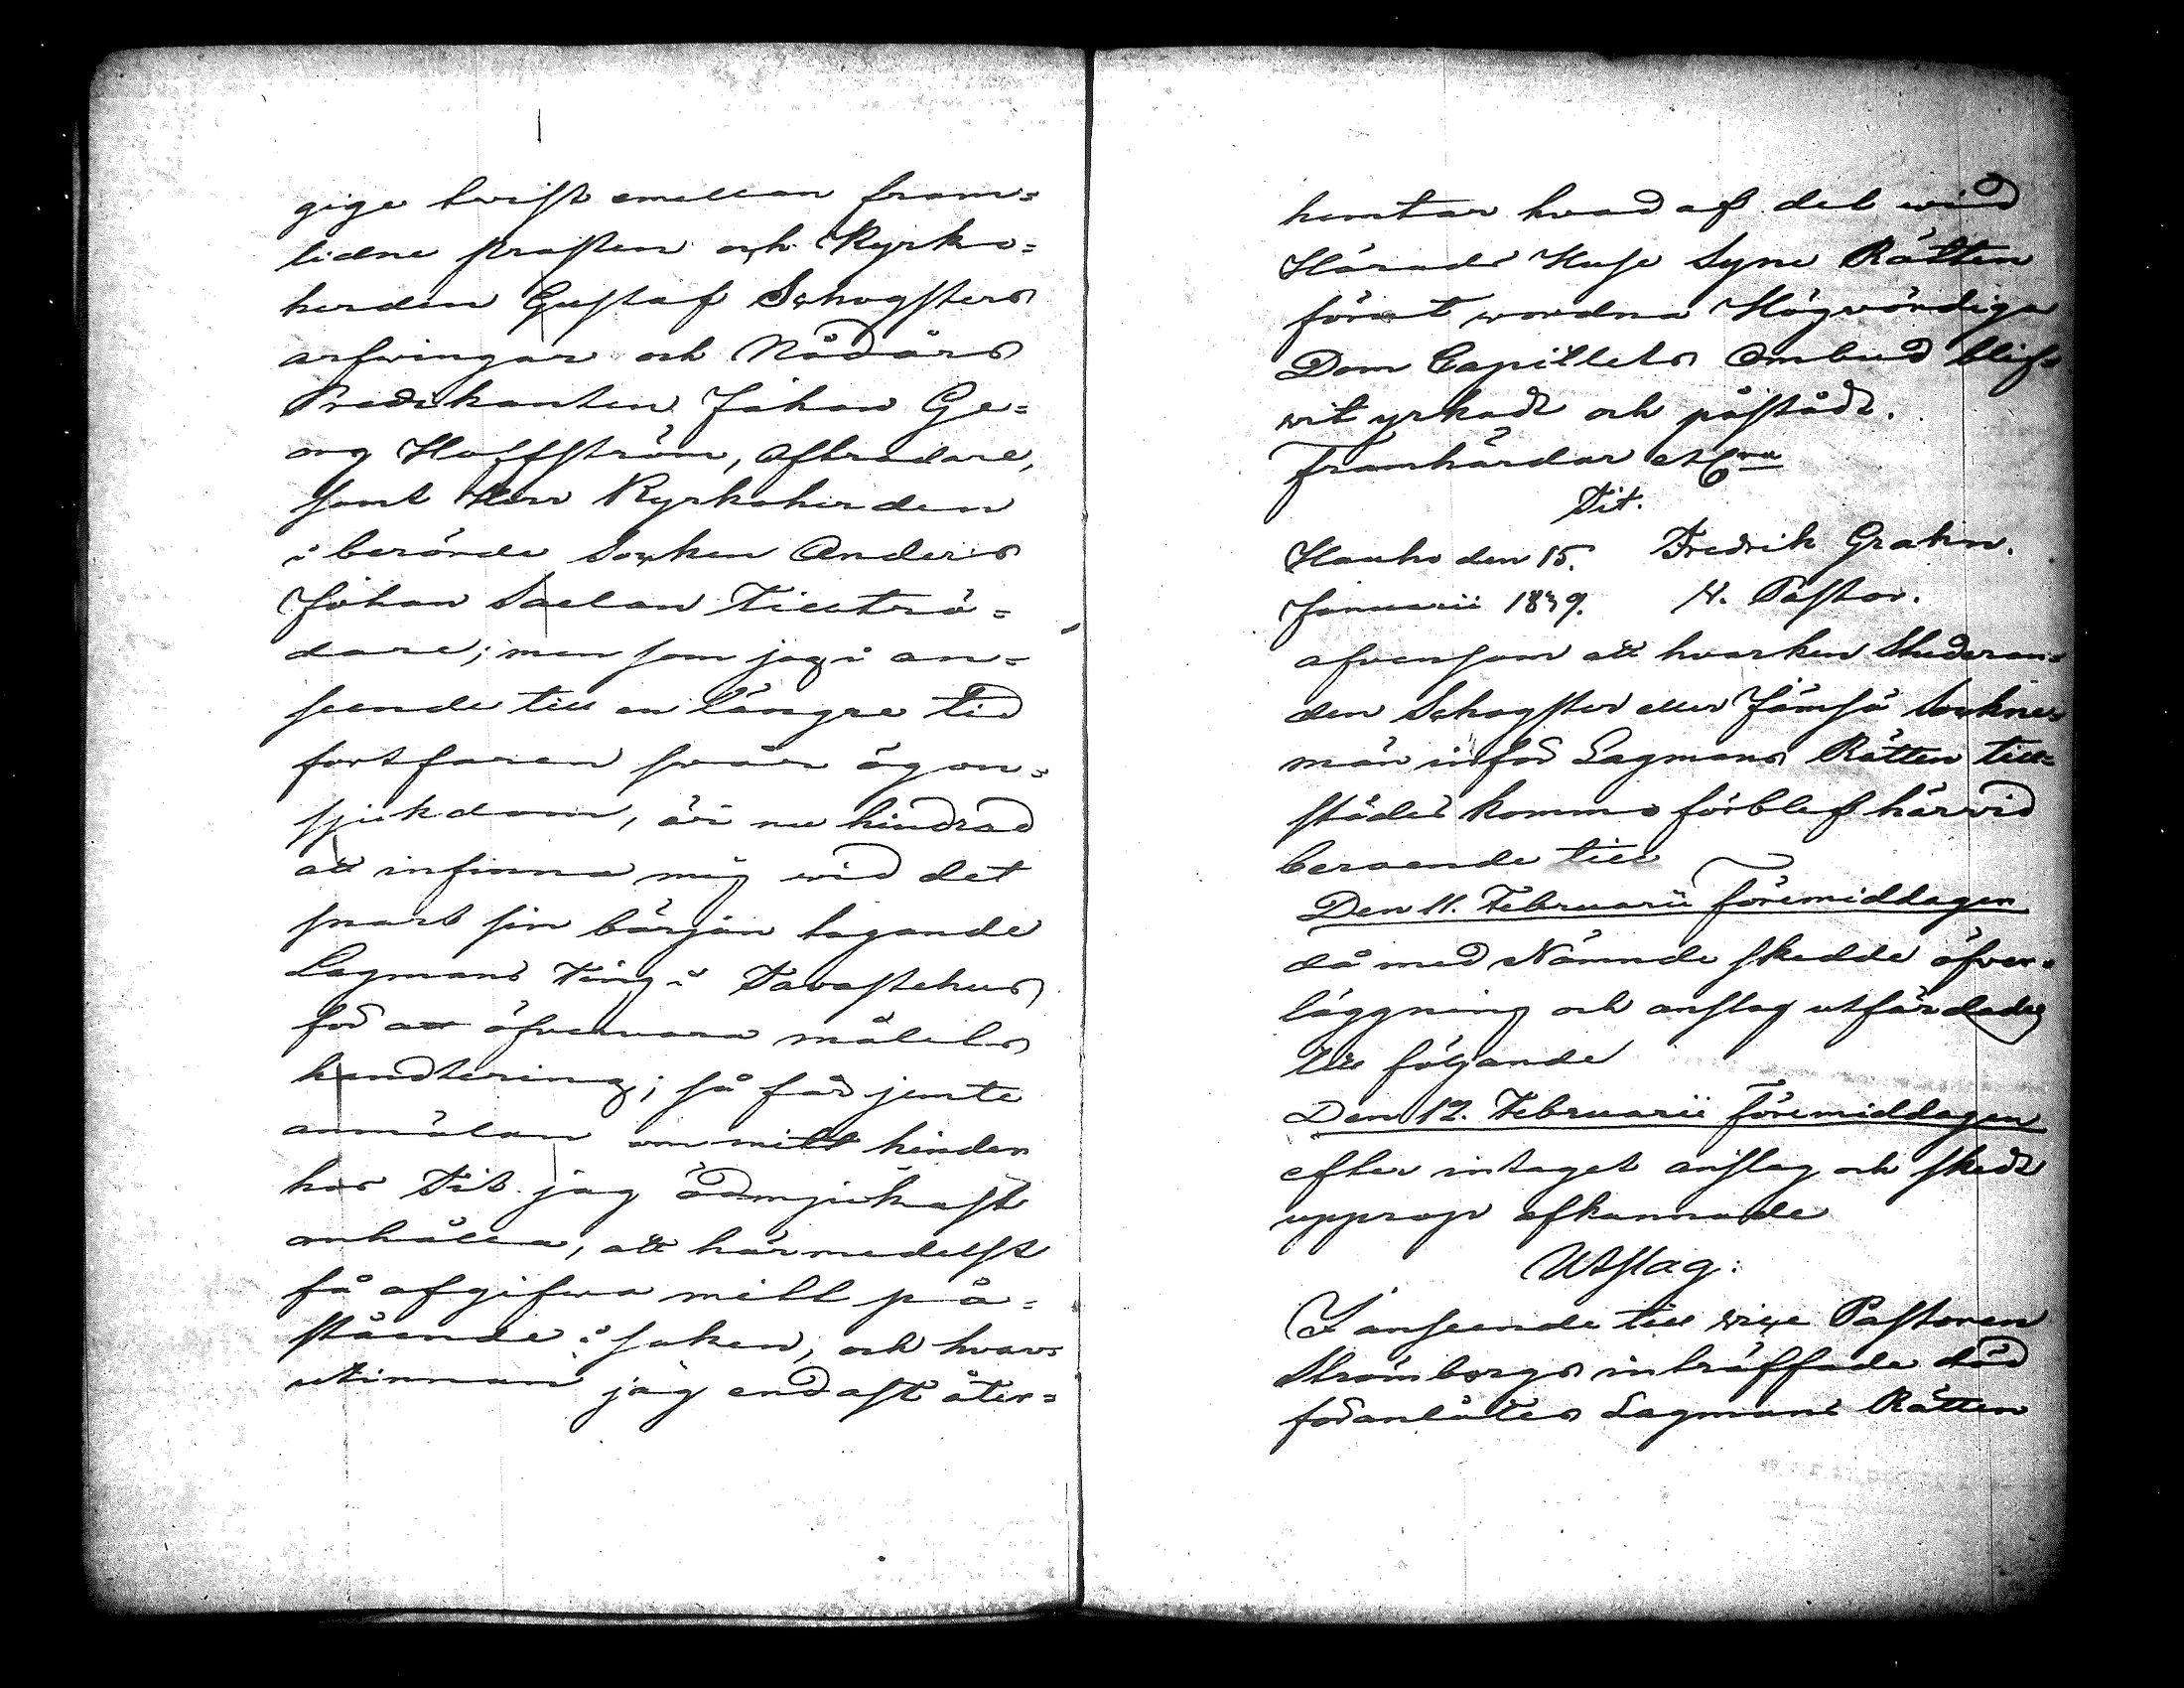 gige twist emellan fram=
lidne Prosten och Kyrko=
herden Gustaf Schogsters
arfwingar och Nådårs
Predikanten Johan Ge=
org Hoffström, Afträdare,
samt Herr Kyrkoherden
i berörde Socken Anders
Johan Saelan Tillträ=
dare; men som jag i an=
seende till en längre tid
fortfaren svår ögon=
sjukdom, är nu hindrad
att infinna mig wid det
snart sin början tagande
Lagmans Ting i Tavastehus
för att öfvervara målets
handtering; så får jemte
anmälan om mitt hinder
hos Tit. jag ödmjukast
anhålla, att härmedelst
få afgifwa mitt på=
stående i saken, och hvar=
utinnan jag endast åter=
hemtar hvad af det wid
Härads Huse Syne Rätten
förut wordna Högvördiga
Dom Capitlets Ombud blif=
wit yrkadt och påstådt.
Framhärdar etc
Tit.
Hauho den 15. Fredrik Grahn.
Januarii 1839. N. Pastor.
äfvensom att hvarken Studeran=
den Schogster eller Jämsä Sockne=
män inför Lagmans Rätten till=
städes kommo förblef härvid
beroende till
Den 11. Februarii förmiddagen
då med Nämnde skedde öfver=
läggning och anslag utfärdades
till följande
Den 12. Februarii förmiddagen
efter intaget anslag och skedt
upprop afkunnade
Utslag:
I anseende till vice Pastoren
Strömborgs inträffade död
föranlåtes Lagmans Rätten